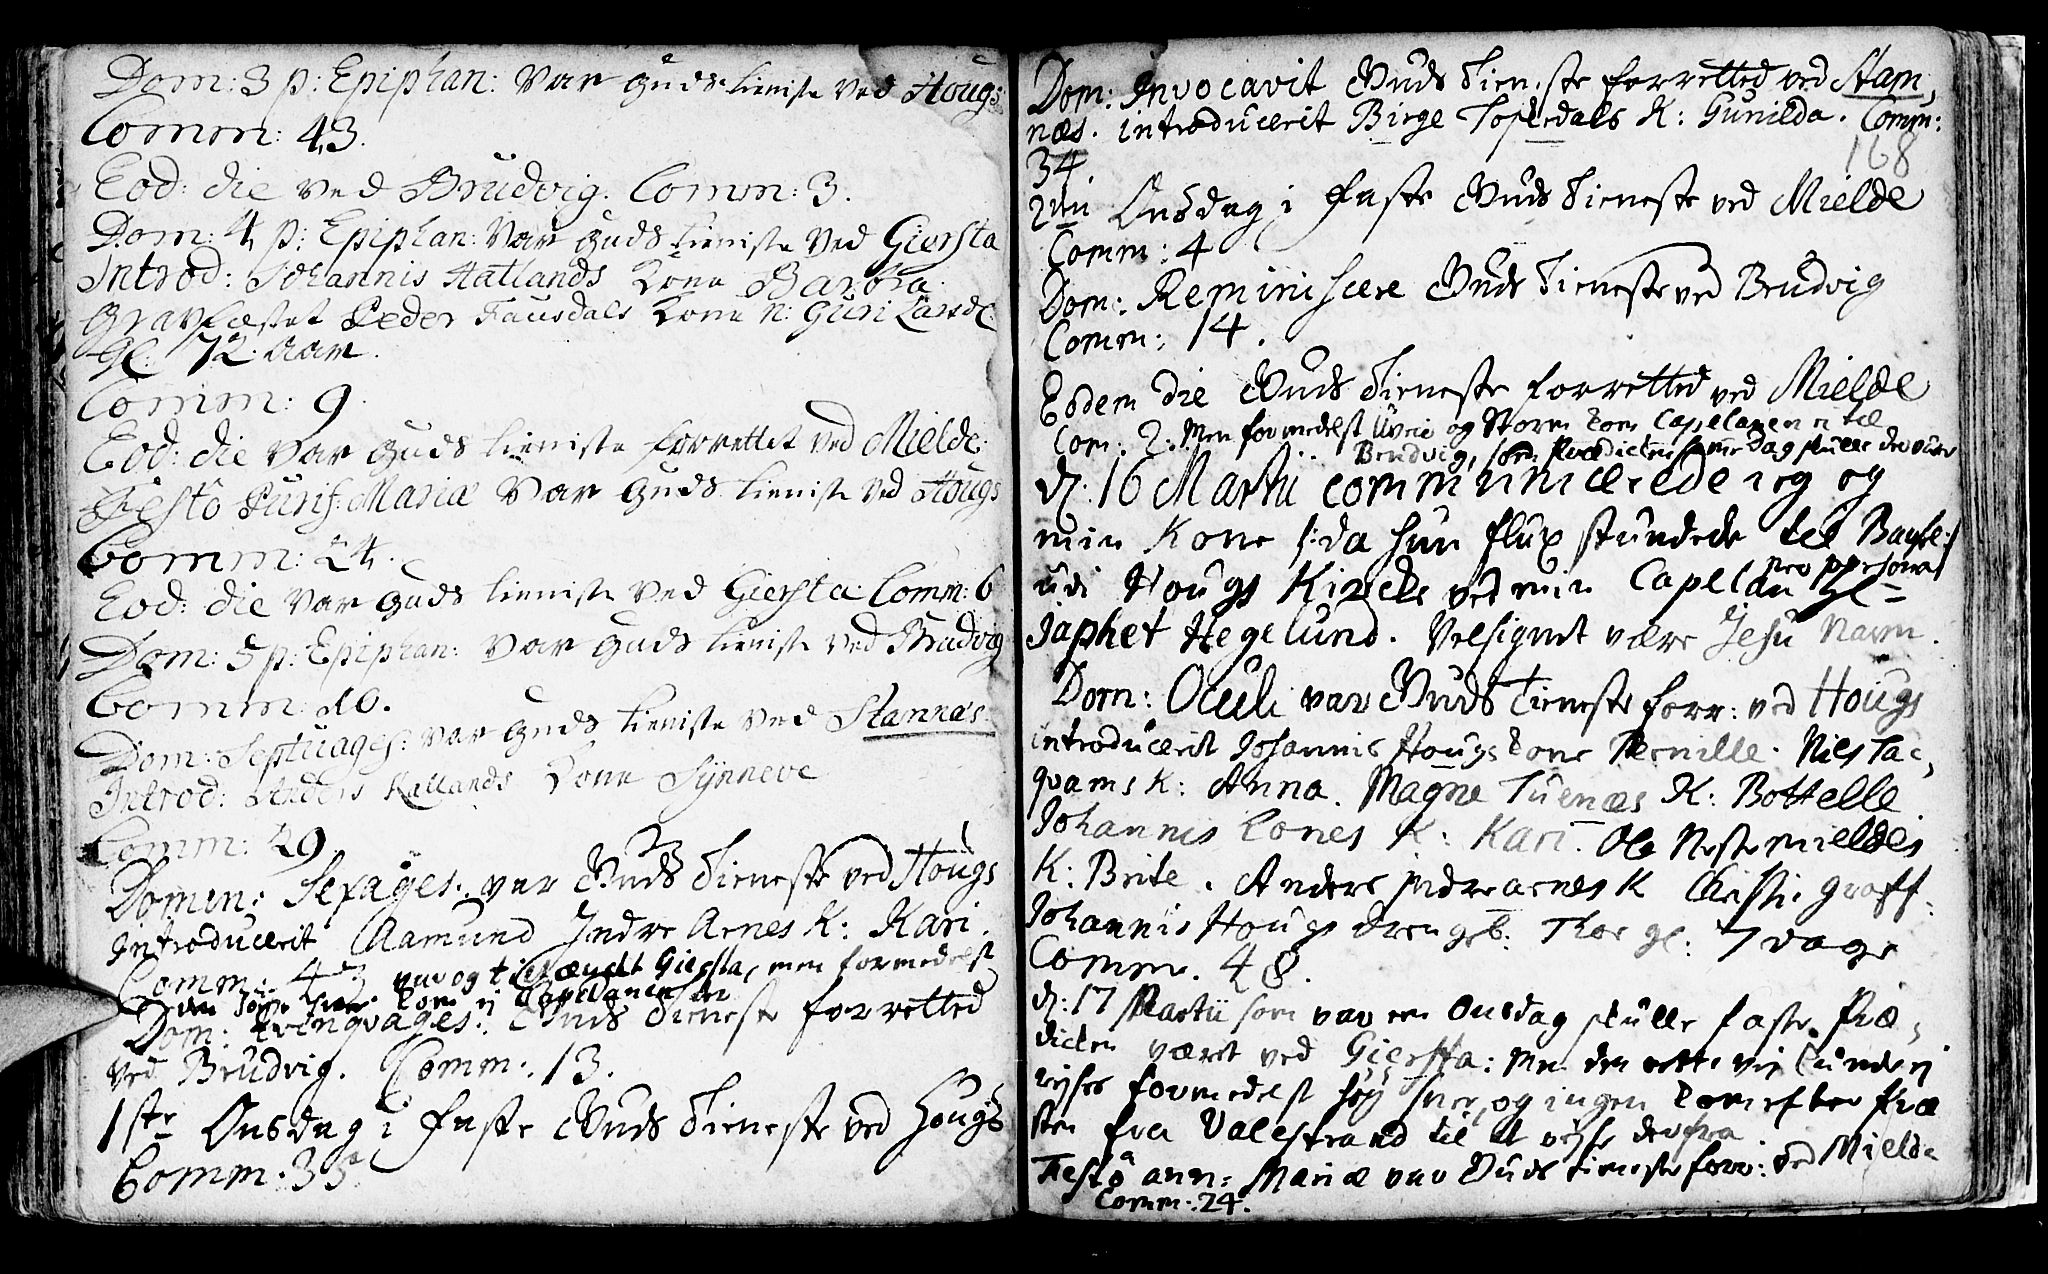 Dom: 3 p: Epiphan: var guds tieniste ved Hougs
Comm: 43.
Eod: die ved Brudvig. Comm: 3.
Dom: 4 p: Epiphan: var guds tieniste ved Giersta
Introd: Johannis Hatlands Kone Barbra.
Gravfæstet Peder Fausdals Kone n: Guri Larsd:
gl: 72. aar.
Comm: 9.
Eod: die var guds tieniste forrettet ved Mielde.
Festo Purif: Mariæ var guds tieniste ved Hougs
Comm: 24.
Eod: die var guds tieniste ved Giersta Comm: 6
Dom: 5 p: Epiphan: var guds tieniste ved Brudvig
Comm: 10.
Dom: Septuages: var guds tieniste ved Stamnæs.
Introd: Anders Kallands Kone Synneve
Comm: 29.
Domin: Sexages: var Guds Tieneste ved Hougs
introducerit Aamund Indre Arnes K: Kari.
Comm: 43 var og tilsændt Giersta, men formedelst
kom ej Capellanen der
Dom: Qvinqvages: Guds Tieneste forretted
ved Brudvig. Comm: 13.
1ste Onsdag i Faste Guds Tieneste ved Hougs
Comm: 35.
Dom: Invocavit Guds Tieneste forretted ved Stam,
næs. introducerit Birge Toskedals K: Gunilda. Comm:
34.
168
2den Onsdag i Faste Guds Tieneste ved Mielde
Comm: 4
Dom: Reminiscere Guds Tieneste ved Brudvig
Comm: 14.
Eodem die Guds Tieneste forretted ved Mielde
Com: 2. Men formedelst Uveir og Storm kom Capellanen ei til
Brudvig, som Prædicken samme dag skulle
d: 16 Martii communicerede ieg og
min Kone /: da hun flux stundede til Barsel :/
udi Hougs Kircke ved min Capelan pro persona Hr
Japhet Hegelund. Velsignet være Jesu Navn.
Dom: Oculi var Guds Tieneste forr: ved Hougs
introducerit Johannis Hougs Kone Pernille. Niels Tac,
qvams K: Anna. Magne Tuenæs K: Bottelle
Johannis Lones K: Kari. Ole Nestemieldes
K: Brite. Anders Indre arnes K Christi. graff:
Johannis Hougs drengeb: Thor gl: 7 dage
Comm. 48.
d: 17 Martii som var en Onsdag skulle faste Præ,
dicken været ved Giersta: Men den rette vej kunde ej
rejses formedelst høy snee, og ingen kom efter Præ
sten fra Valestrand til at rejse derfra.
Festo ann: Mariæ var Guds Tieneste forr: ved Mielde
Comm: 24.